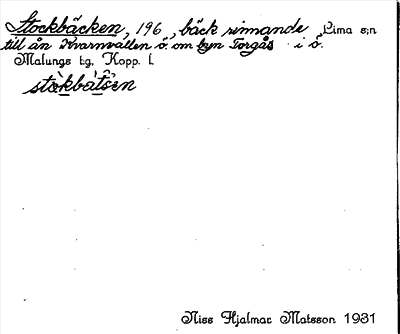 Stockbäcken, 196, bäck rinnande Lima s;n
till ån Kvarnvallen ö. om byn Torgås i ö.
Malungs t;g, Kopp. l.
Nils Hjalmar Matsson 1931